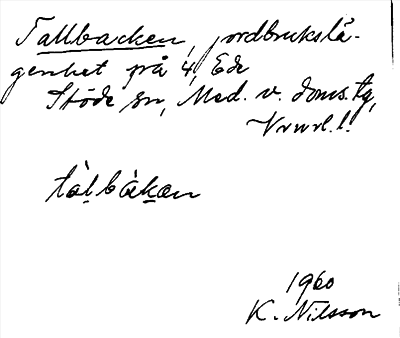 Tallbacken, jordbrukslä-
genhet på 4, Ede
Stöde sn, Med. v. doms. tg,
Vnvrl. l.
tàlbàkæn
1960
K. Nilsson